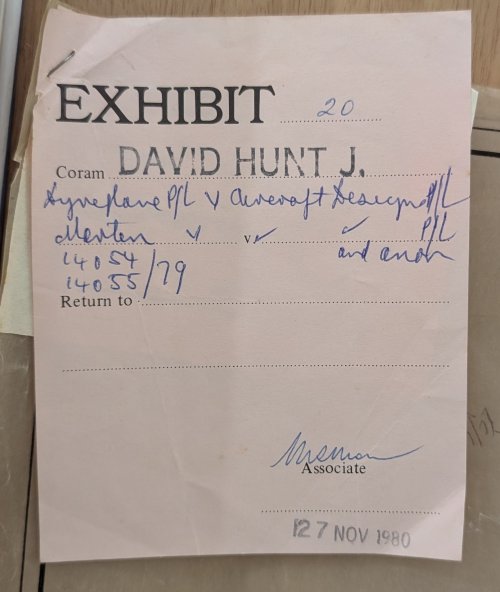 EXHIBIT 20
Coram DAVID HUNT J.
Gyroplane P/L v Aircraft Designs P/L
Merten v v ✓ P/L
14054 and anor
14055/79
Return to
Associate
27 NOV 1980